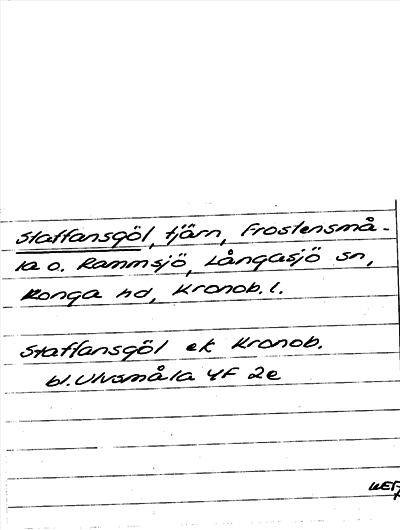 Staffansgöl, tjärn, Frostensmå-
la o. Rammsjö, Långasjö sn,
Konga hd, Kronob. l.
Staffansgöl ek Kronob.
bl. Ulvsmåla 4F 2e